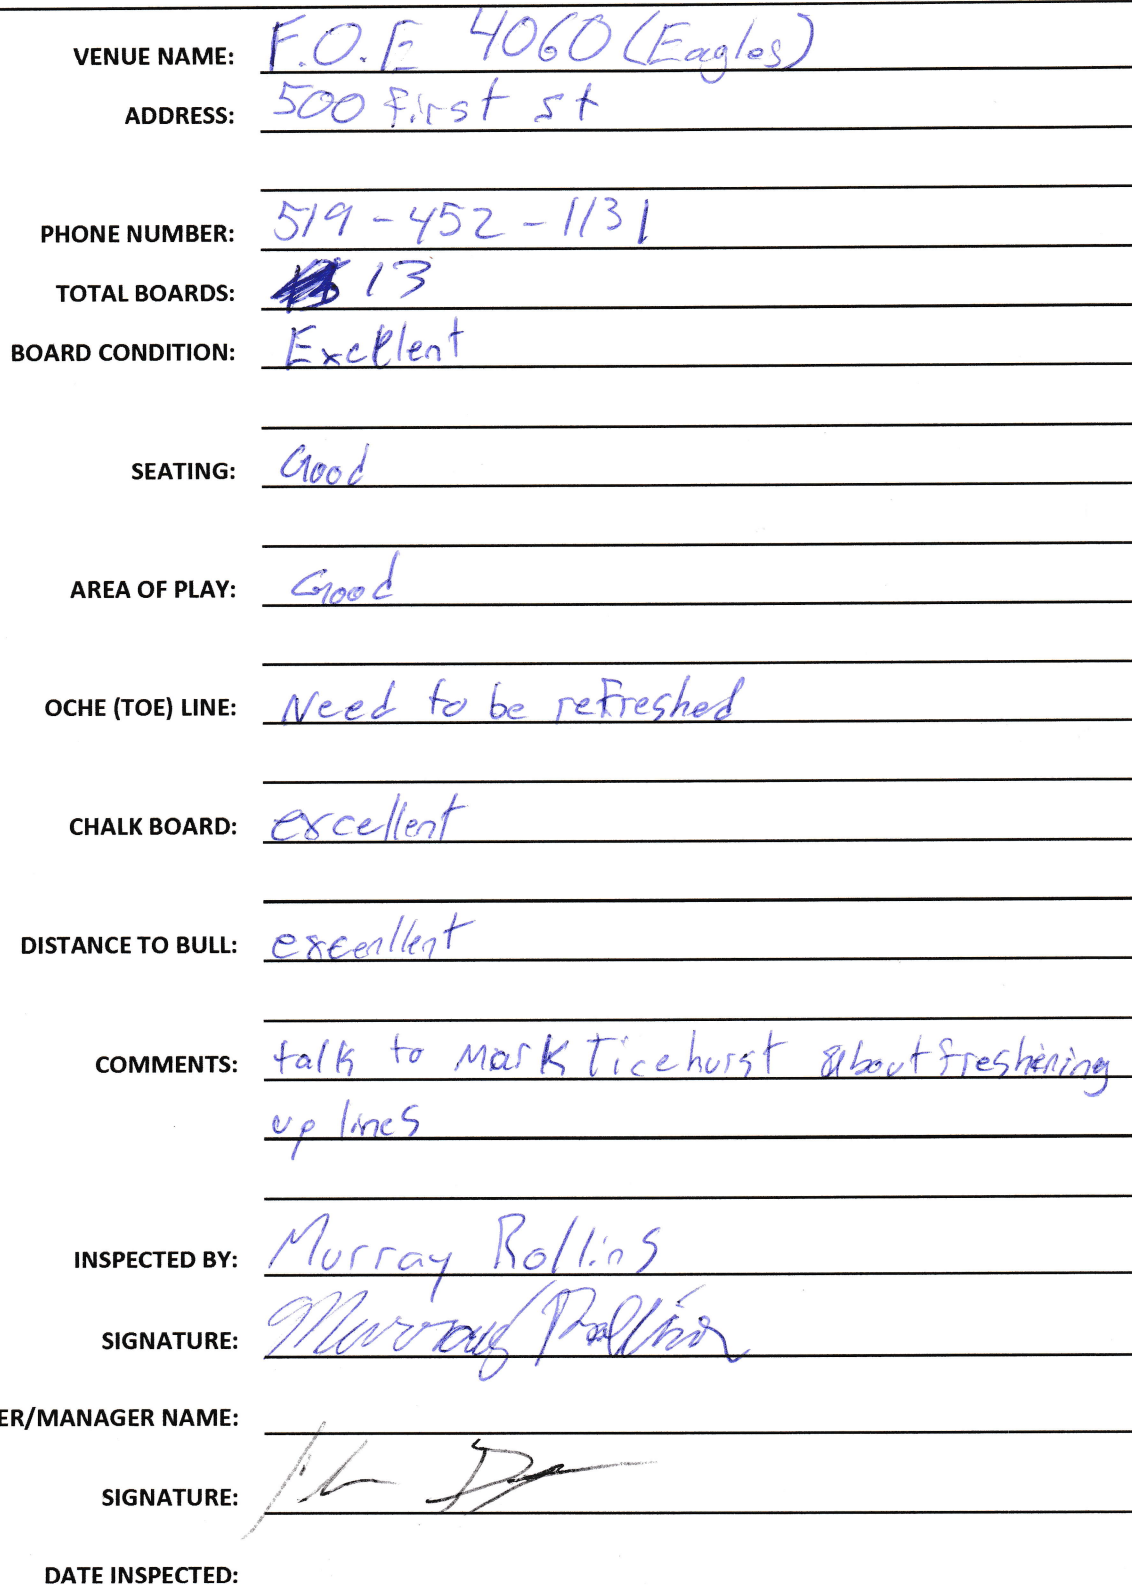 VENUE NAME: F.O.E 4060 (Eagles)
ADDRESS: 500 First st
PHONE NUMBER: 519-452-1131
TOTAL BOARDS: 13
BOARD CONDITION: Excellent
SEATING: Good
AREA OF PLAY: Good
OCHE (TOE) LINE: Need to be refreshed
CHALK BOARD: excellent
DISTANCE TO BULL: exeenllent
COMMENTS: talk to Mark Ticehurst about freshening
up lines
INSPECTED BY: Murray Rollins
SIGNATURE: Murray Rollins
ER/MANAGER NAME:
SIGNATURE:
DATE INSPECTED: